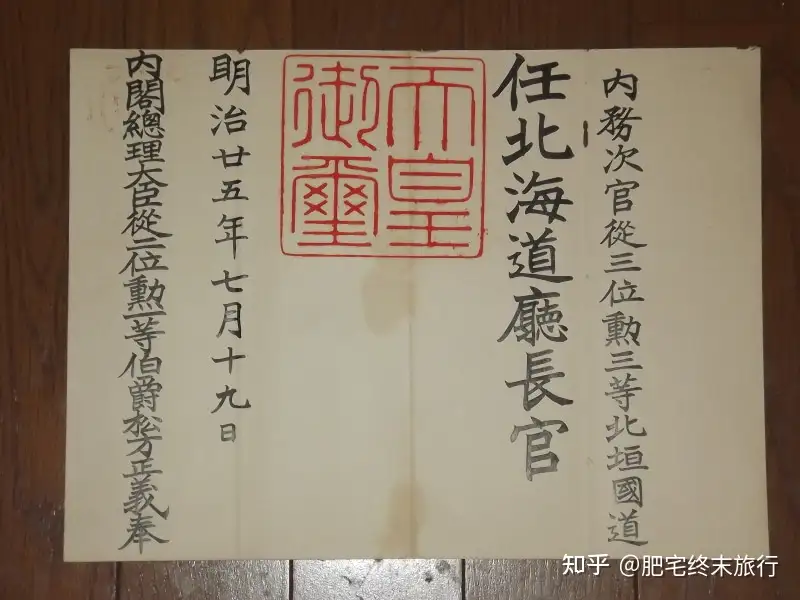 内務次官從三位勲三等北垣國道
任北海道廳長官
天皇
御璽
明治廿五年七月十九日
內閣總理大臣從二位勲一等伯爵松方正義奉
知乎 @肥宅终末旅行